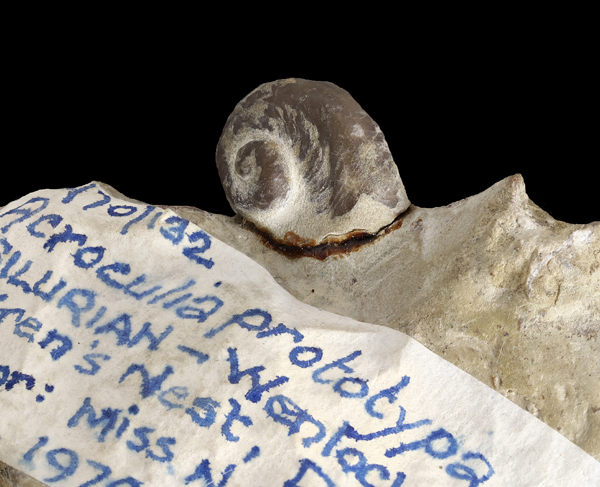 170/132
Acroculia prototypa
SILURIAN - Wenlock
Wren's Nest'
or: Miss N. D
1970